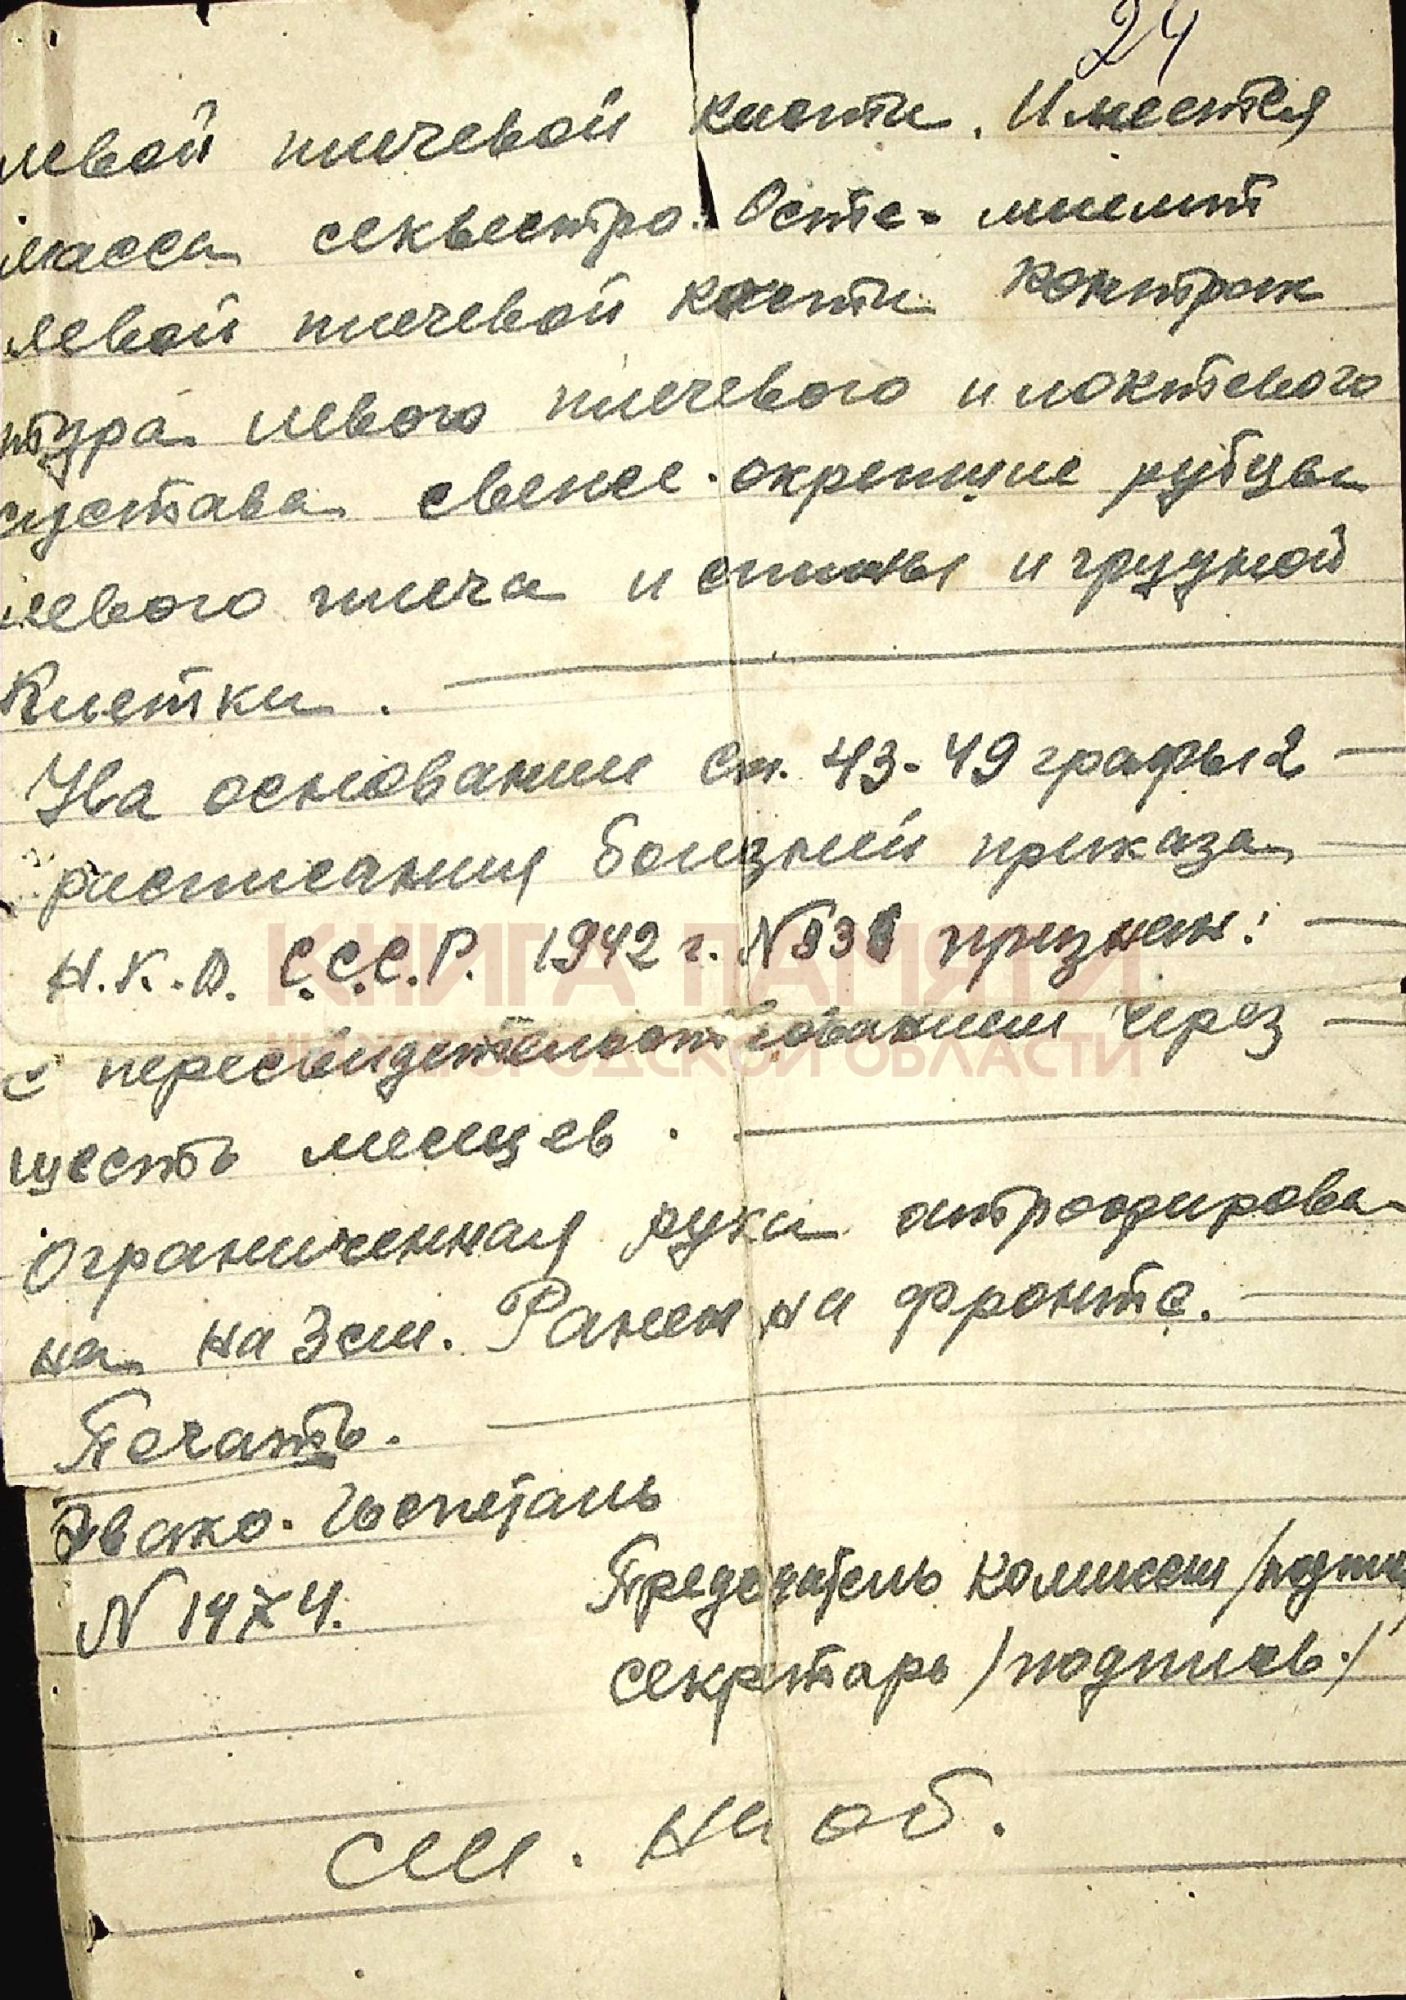 24
левой плечевой кости. Имеется
масса секвестро. Осте-миелит
левой плечевой кости контрак
тура левого плечевого и локтевого
сустава свеже-окрепшие рубцы
левого плеча и спины и грудной
Клетки.
На основании ст. 43-49 графы 2
расписания болезней приказа
Н.К.О. С.С.С.Р. 1942 г. N 336 признан:
с пересвидетельствованием через
шесть месяцев.
Ограниченная рука атрофирова-
на на 3 см. Ранен на фронте.
Печать.
Эвако. Госпеталь
N 1474.
Председатель комиссии /подпи
секретарь /подпись./
см. на об.
КНИГА ПАМЯТИ
НИЖЕГОРОДСКОЙ ОБЛАСТИ